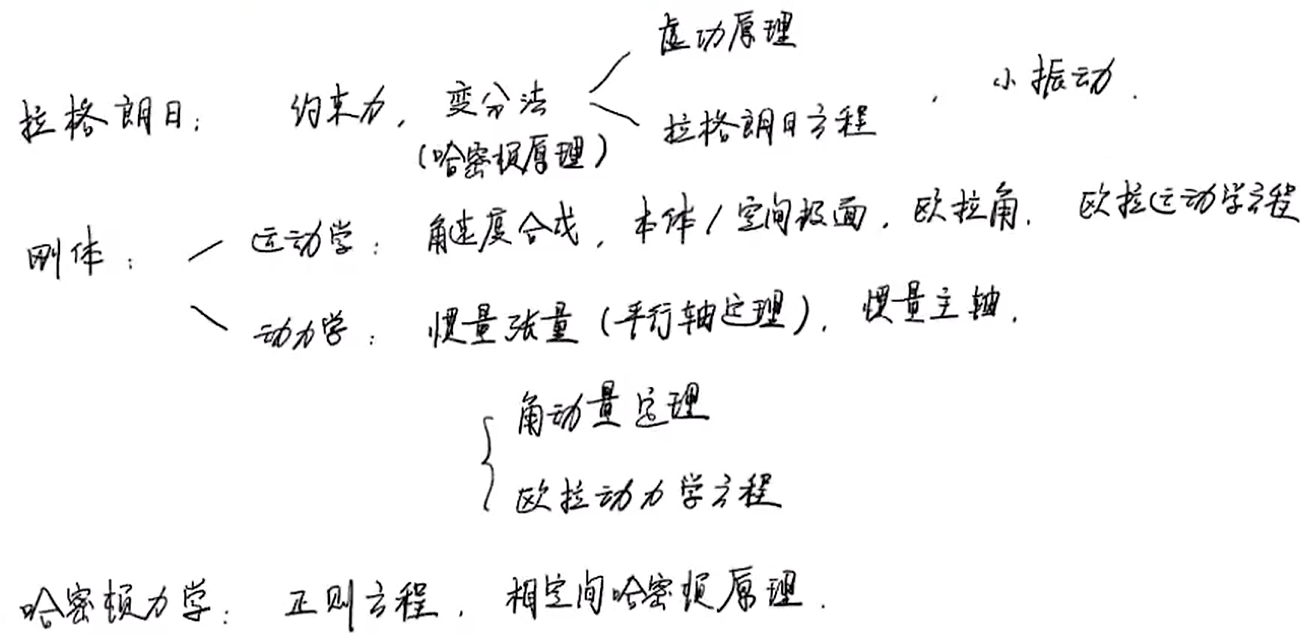 虚功原理
拉格朗日： 约束力，变分法 ，小振动．
(哈密顿原理) 拉格朗日方程
刚体： 运动学：角速度合成，本体/空间极面，欧拉角．欧拉运动学方程
动力学：惯量张量(平行轴定理)，惯量主轴．
角动量定理
欧拉动力学方程
哈密顿力学：正则方程，相空间哈密顿原理．